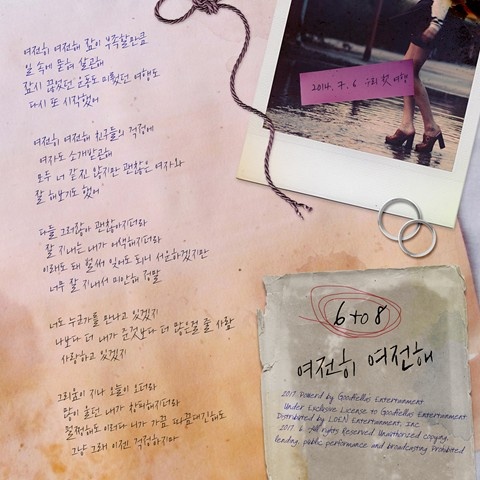 여전히 여전해 잠이 부족할만큼
일 속에 묻혀 살곤해
잠시 끊었던 운동도 미뤘던 여행도
다시 또 시작했어
여전히 여전해 친구들의 걱정에
여자도 소개받곤해
모두 너 같진 않지만 괜찮은 여자와
잘 해보기도 했어
다들 그러잖아 괜찮아지더라
잘 지내는 내가 어색해지더라
이래도 돼 벌써 잊어도 되니 서운하겠지만
너무 잘 지내서 미안해 정말
너도 누군가를 만나고 있겠지
나보다 더 내가 준것보다 더 많은걸 줄 사람
사랑하고 있겠지
그리움이 지나 오늘이 오더라
많이 울던 내가 창피해지더라
멀쩡해도 이러다 내가 가끔 따끔대긴해도
그냥 그래 이젠 걱정하지마
2014. 7. 6 우리 첫 여행
6 to 8
여전히 여전해
2017. Powered by Goodfellas Entertainment
Under Exclusive License to Goodfellas Entertainment
Distributed by LOEN Entertainment, Inc
2017. 6. All rights Reserved. Unauthorized copying,
lending, public performance and broadcasting Prohibited